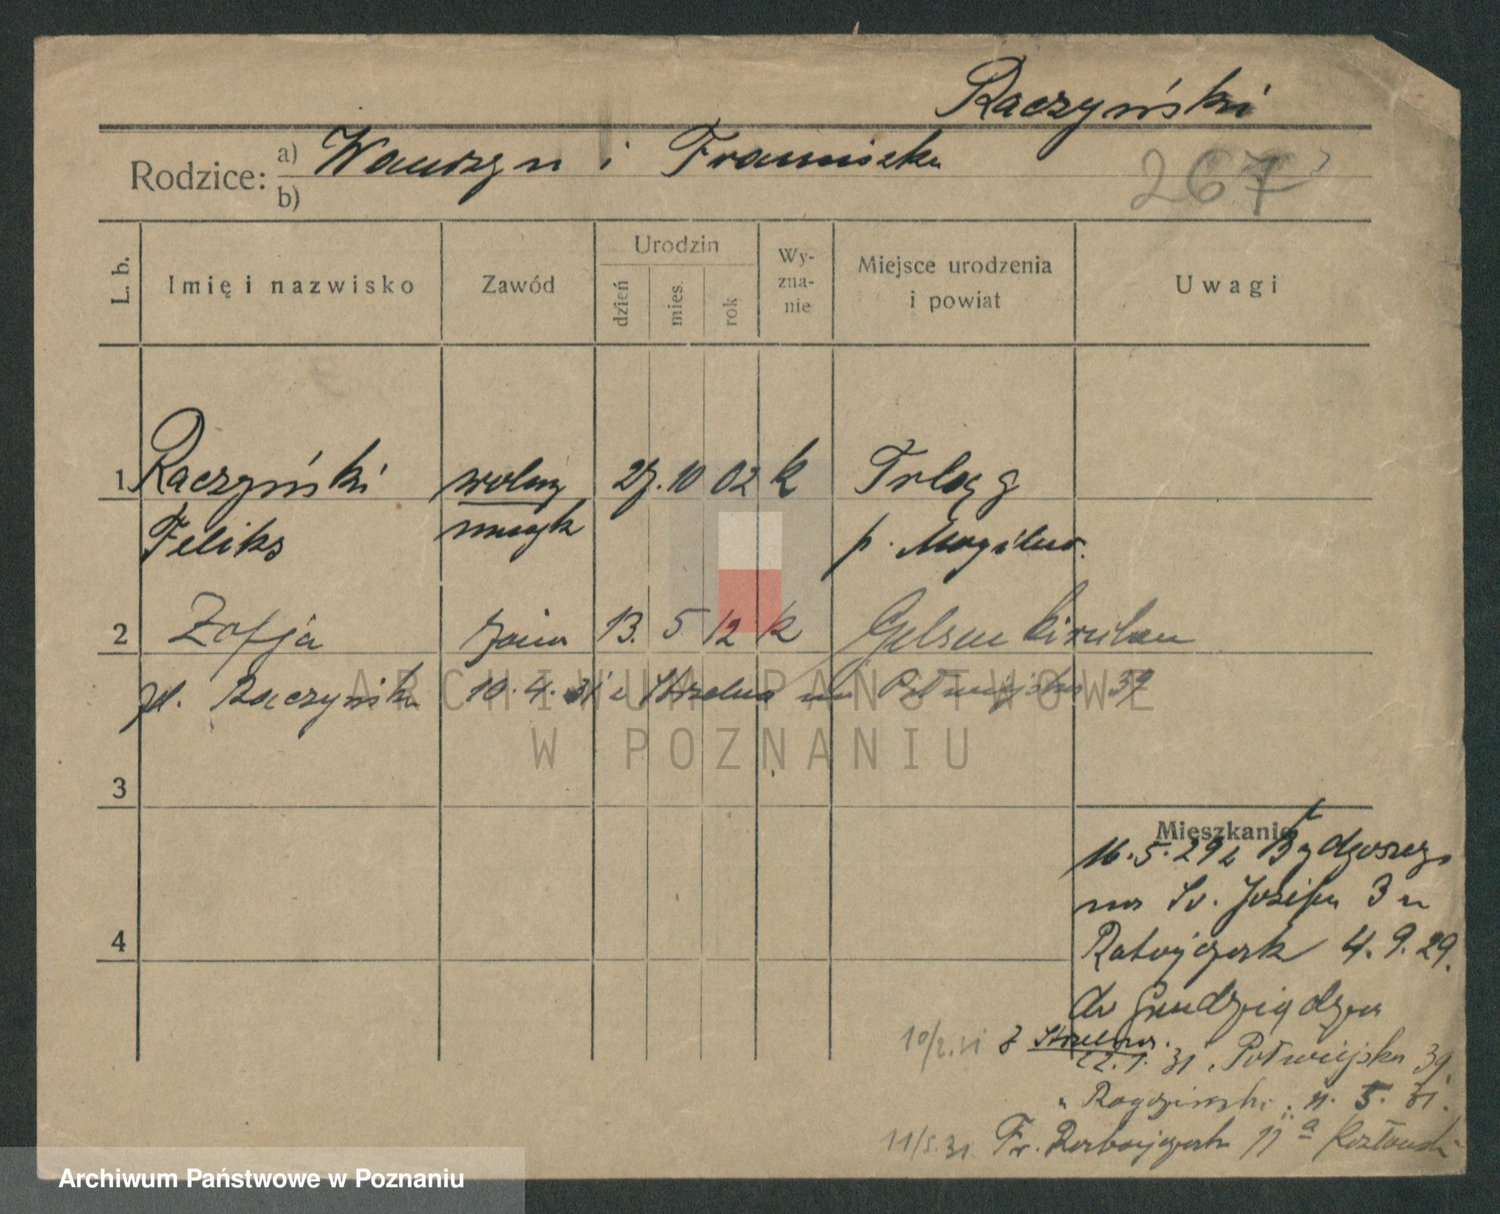 Raczyński
Rodzice: a) Wawrzyn i Franciszka
b)
267
L. b.
Imię i nazwisko
Zawód
Urodzin
dzień
mies.
rok
Wy-
zna-
nie
Miejsce urodzenia
i powiat
Uwagi
1 Raczyński wolny 27. 10 02 k Trląg
Feliks muzyk p. Mogilno.
2 Zofja żona 13. 5 12 k Gelsenkirchen
Raczyńska 10. 4. 31 z Strzelna na Półwiejska 39
ARCHIWUM PAŃSTWOWE
W POZNANIU
3
Mieszkanie
16. 5. 29 z Bydgoszczy
na Św. Józefa 3 u
4
Ratajczak 4. 9. 29.
do Grudziądza
10/2.31 z Strzelna.
22. 1. 31 Półwiejska 39
5. 31.
11/5.31. Fr. Ratajczaka 11a
Archiwum Państwowe w Poznaniu